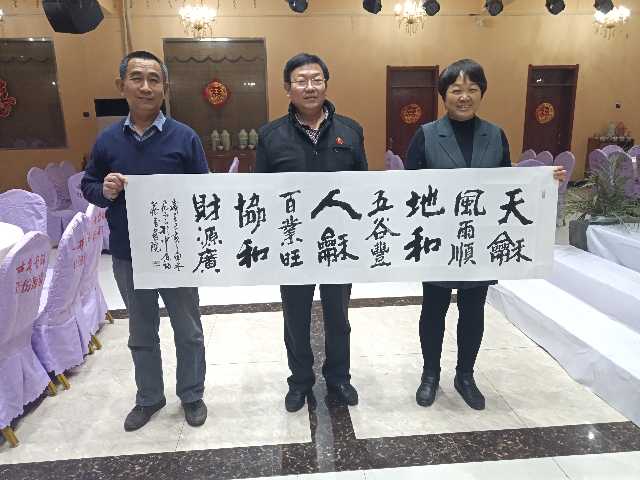 天龢
風雨順
地和
五谷豐
人龢
百業旺
協和
財源廣